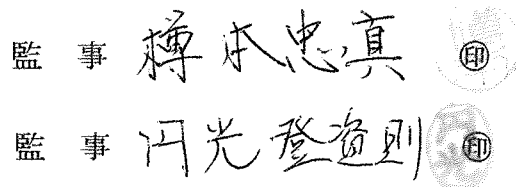 監事 樽本忠真 ㊞
監事 円光登資則 ㊞